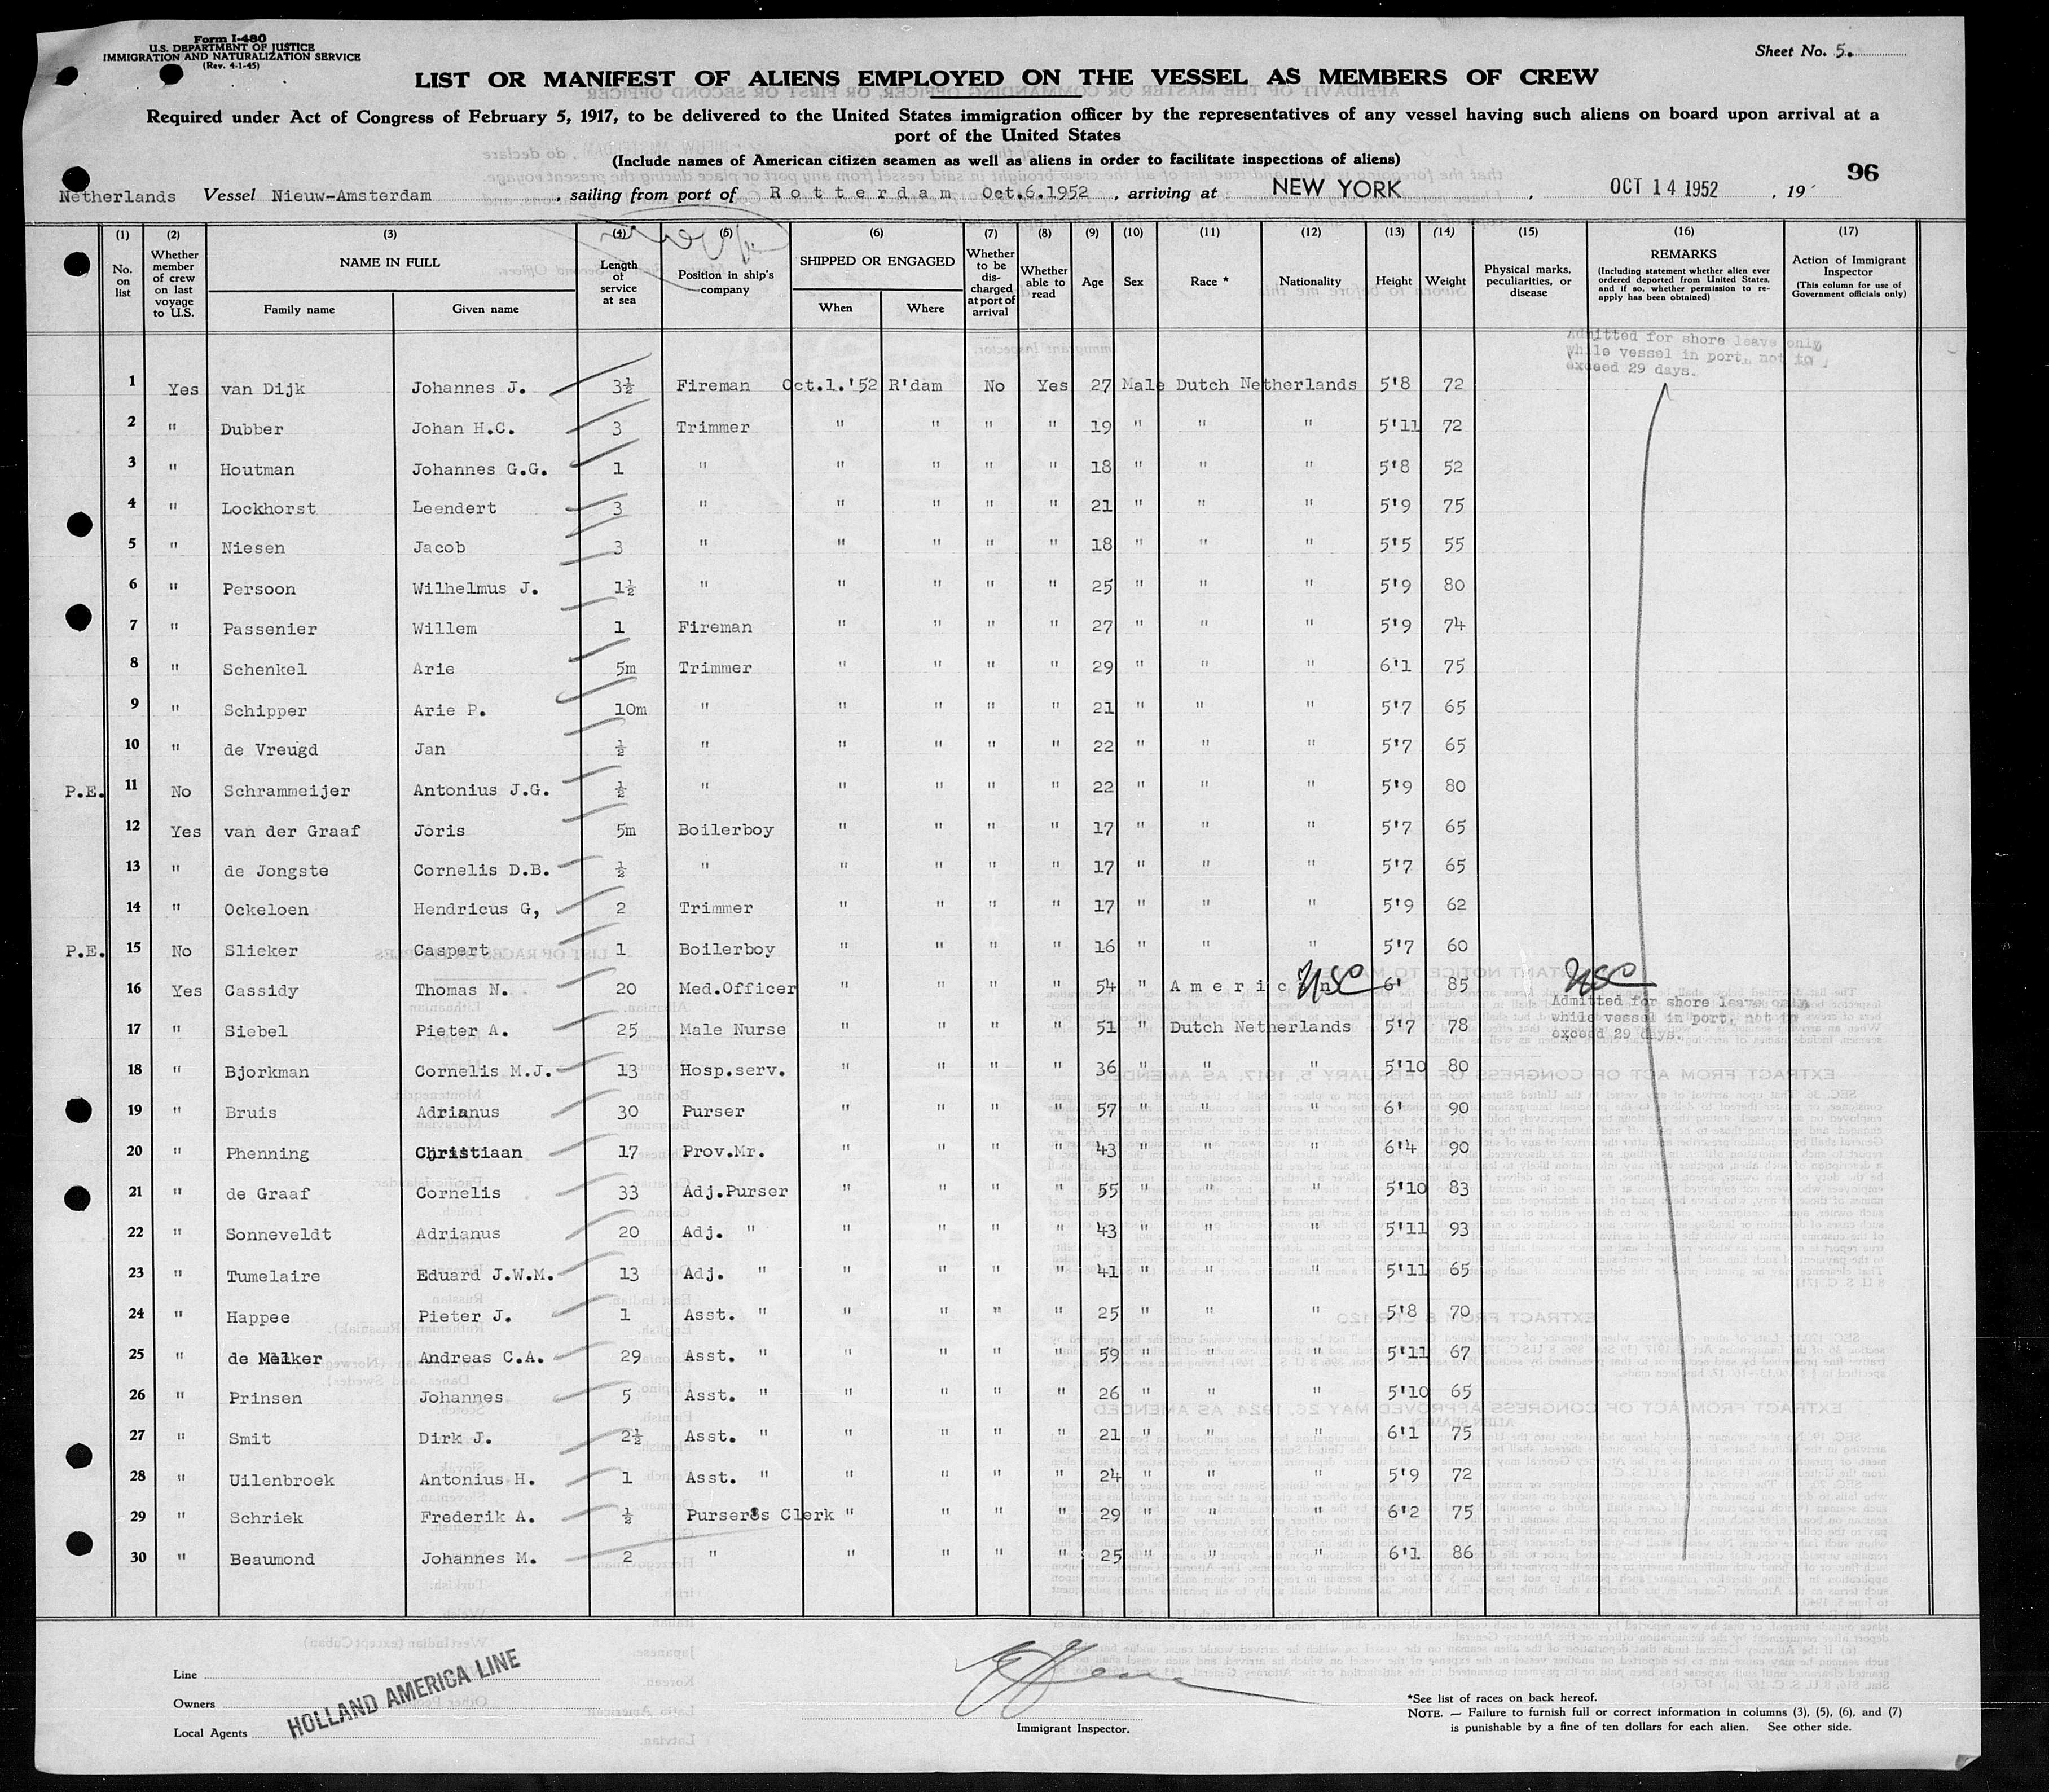 Form I-480
U.S. DEPARTMENT OF JUSTICE
IMMIGRATION AND NATURALIZATION SERVICE
(Rev. 4-1-45)
Sheet No. 5.
LIST OR MANIFEST OF ALIENS EMPLOYED ON THE VESSEL AS MEMBERS OF CREW
Required under Act of Congress of February 5, 1917, to be delivered to the United States immigration officer by the representatives of any vessel having such aliens on board upon arrival at a
port of the United States
(Include names of American citizen seamen as well as aliens in order to facilitate inspections of aliens)
96
Netherlands Vessel Nieuw-Amsterdam , sailing from port of Rotterdam Oct.6.1952 , arriving at NEW YORK , OCT 14 1952 , 19
(1) (2) (3) (4) (5) (6) (7) (8) (9) (10) (11) (12) (13) (14) (15) (16) (17)
No. on list
Whether member of crew on last voyage to U.S.
NAME IN FULL
Family name
Given name
Length of service at sea
Position in ship's company
SHIPPED OR ENGAGED
When
Where
Whether to be discharged at port of arrival
Whether able to read
Age
Sex
Race *
Nationality
Height
Weight
Physical marks, peculiarities, or disease
REMARKS
(Including statement whether alien ever ordered deported from United States, and if so, whether permission to reapply has been obtained)
Action of Immigrant Inspector
(This column for use of Government officials only)
Admitted for shore leave only
while vessel in port, not to
exceed 29 days.
1 Yes van Dijk Johannes J. 3½ Fireman Oct.1.'52 R'dam No Yes 27 Male Dutch Netherlands 5'8 72
2 " Dubber Johan H.C. 3 Trimmer " " " " 19 " " " 5'11 72
3 " Houtman Johannes G.G. 1 " " " " " 18 " " " 5'8 52
4 " Lockhorst Leendert 3 " " " " " 21 " " " 5'9 75
5 " Niesen Jacob 3 " " " " " 18 " " " 5'5 55
6 " Persoon Wilhelmus J. 1½ " " " " " 25 " " " 5'9 80
7 " Passenier Willem 1 Fireman " " " " 27 " " " 5'9 74
8 " Schenkel Arie 5m Trimmer " " " " 29 " " " 6'1 75
9 " Schipper Arie P. 10m " " " " " 21 " " " 5'7 65
10 " de Vreugd Jan ½ " " " " " 22 " " " 5'7 65
P.E. 11 No Schrammeijer Antonius J.G. ½ " " " " " 22 " " " 5'9 80
12 Yes van der Graaf Joris 5m Boilerboy " " " " 17 " " " 5'7 65
13 " de Jongste Cornelis D.B. ½ " " " " " 17 " " " 5'7 65
14 " Ockeloen Hendricus G, 2 Trimmer " " " " 17 " " " 5'9 62
P.E. 15 No Slieker Caspert 1 Boilerboy " " " " 16 " " " 5'7 60
16 Yes Cassidy Thomas N. 20 Med.Officer " " " " 54 " American USC 6' 85 USC
Admitted for shore leave only
while vessel in port, not to
exceed 29 days.
17 " Siebel Pieter A. 25 Male Nurse " " " " 51 " Dutch Netherlands 5'7 78
18 " Bjorkman Cornelis M.J. 13 Hosp.serv. " " " " 36 " " " 5'10 80
19 " Bruis Adrianus 30 Purser " " " " 57 " " " 6' 90
20 " Phenning Christiaan 17 Prov.Mr. " " " " 43 " " " 6'4 90
21 " de Graaf Cornelis 33 Adj.Purser " " " " 55 " " " 5'10 83
22 " Sonneveldt Adrianus 20 Adj. " " " " " 43 " " " 5'11 93
23 " Tumelaire Eduard J.W.M. 13 Adj. " " " " " 41 " " " 5'11 65
24 " Happee Pieter J. 1 Asst. " " " " " 25 " " " 5'8 70
25 " de Melker Andreas C.A. 29 Asst. " " " " " 59 " " " 5'11 67
26 " Prinsen Johannes 5 Asst. " " " " " 26 " " " 5'10 65
27 " Smit Dirk J. 2½ Asst. " " " " " 21 " " " 6'1 75
28 " Uilenbroek Antonius H. 1 Asst. " " " " " 24 " " " 5'9 72
29 " Schriek Frederik A. ½ Purser's Clerk " " " " 29 " " " 6'2 75
30 " Beaumond Johannes M. 2 " " " " " 25 " " " 6'1 86
Line
Owners
Local Agents
HOLLAND AMERICA LINE
Immigrant Inspector.
*See list of races on back hereof.
NOTE. — Failure to furnish full or correct information in columns (3), (5), (6), and (7)
is punishable by a fine of ten dollars for each alien. See other side.